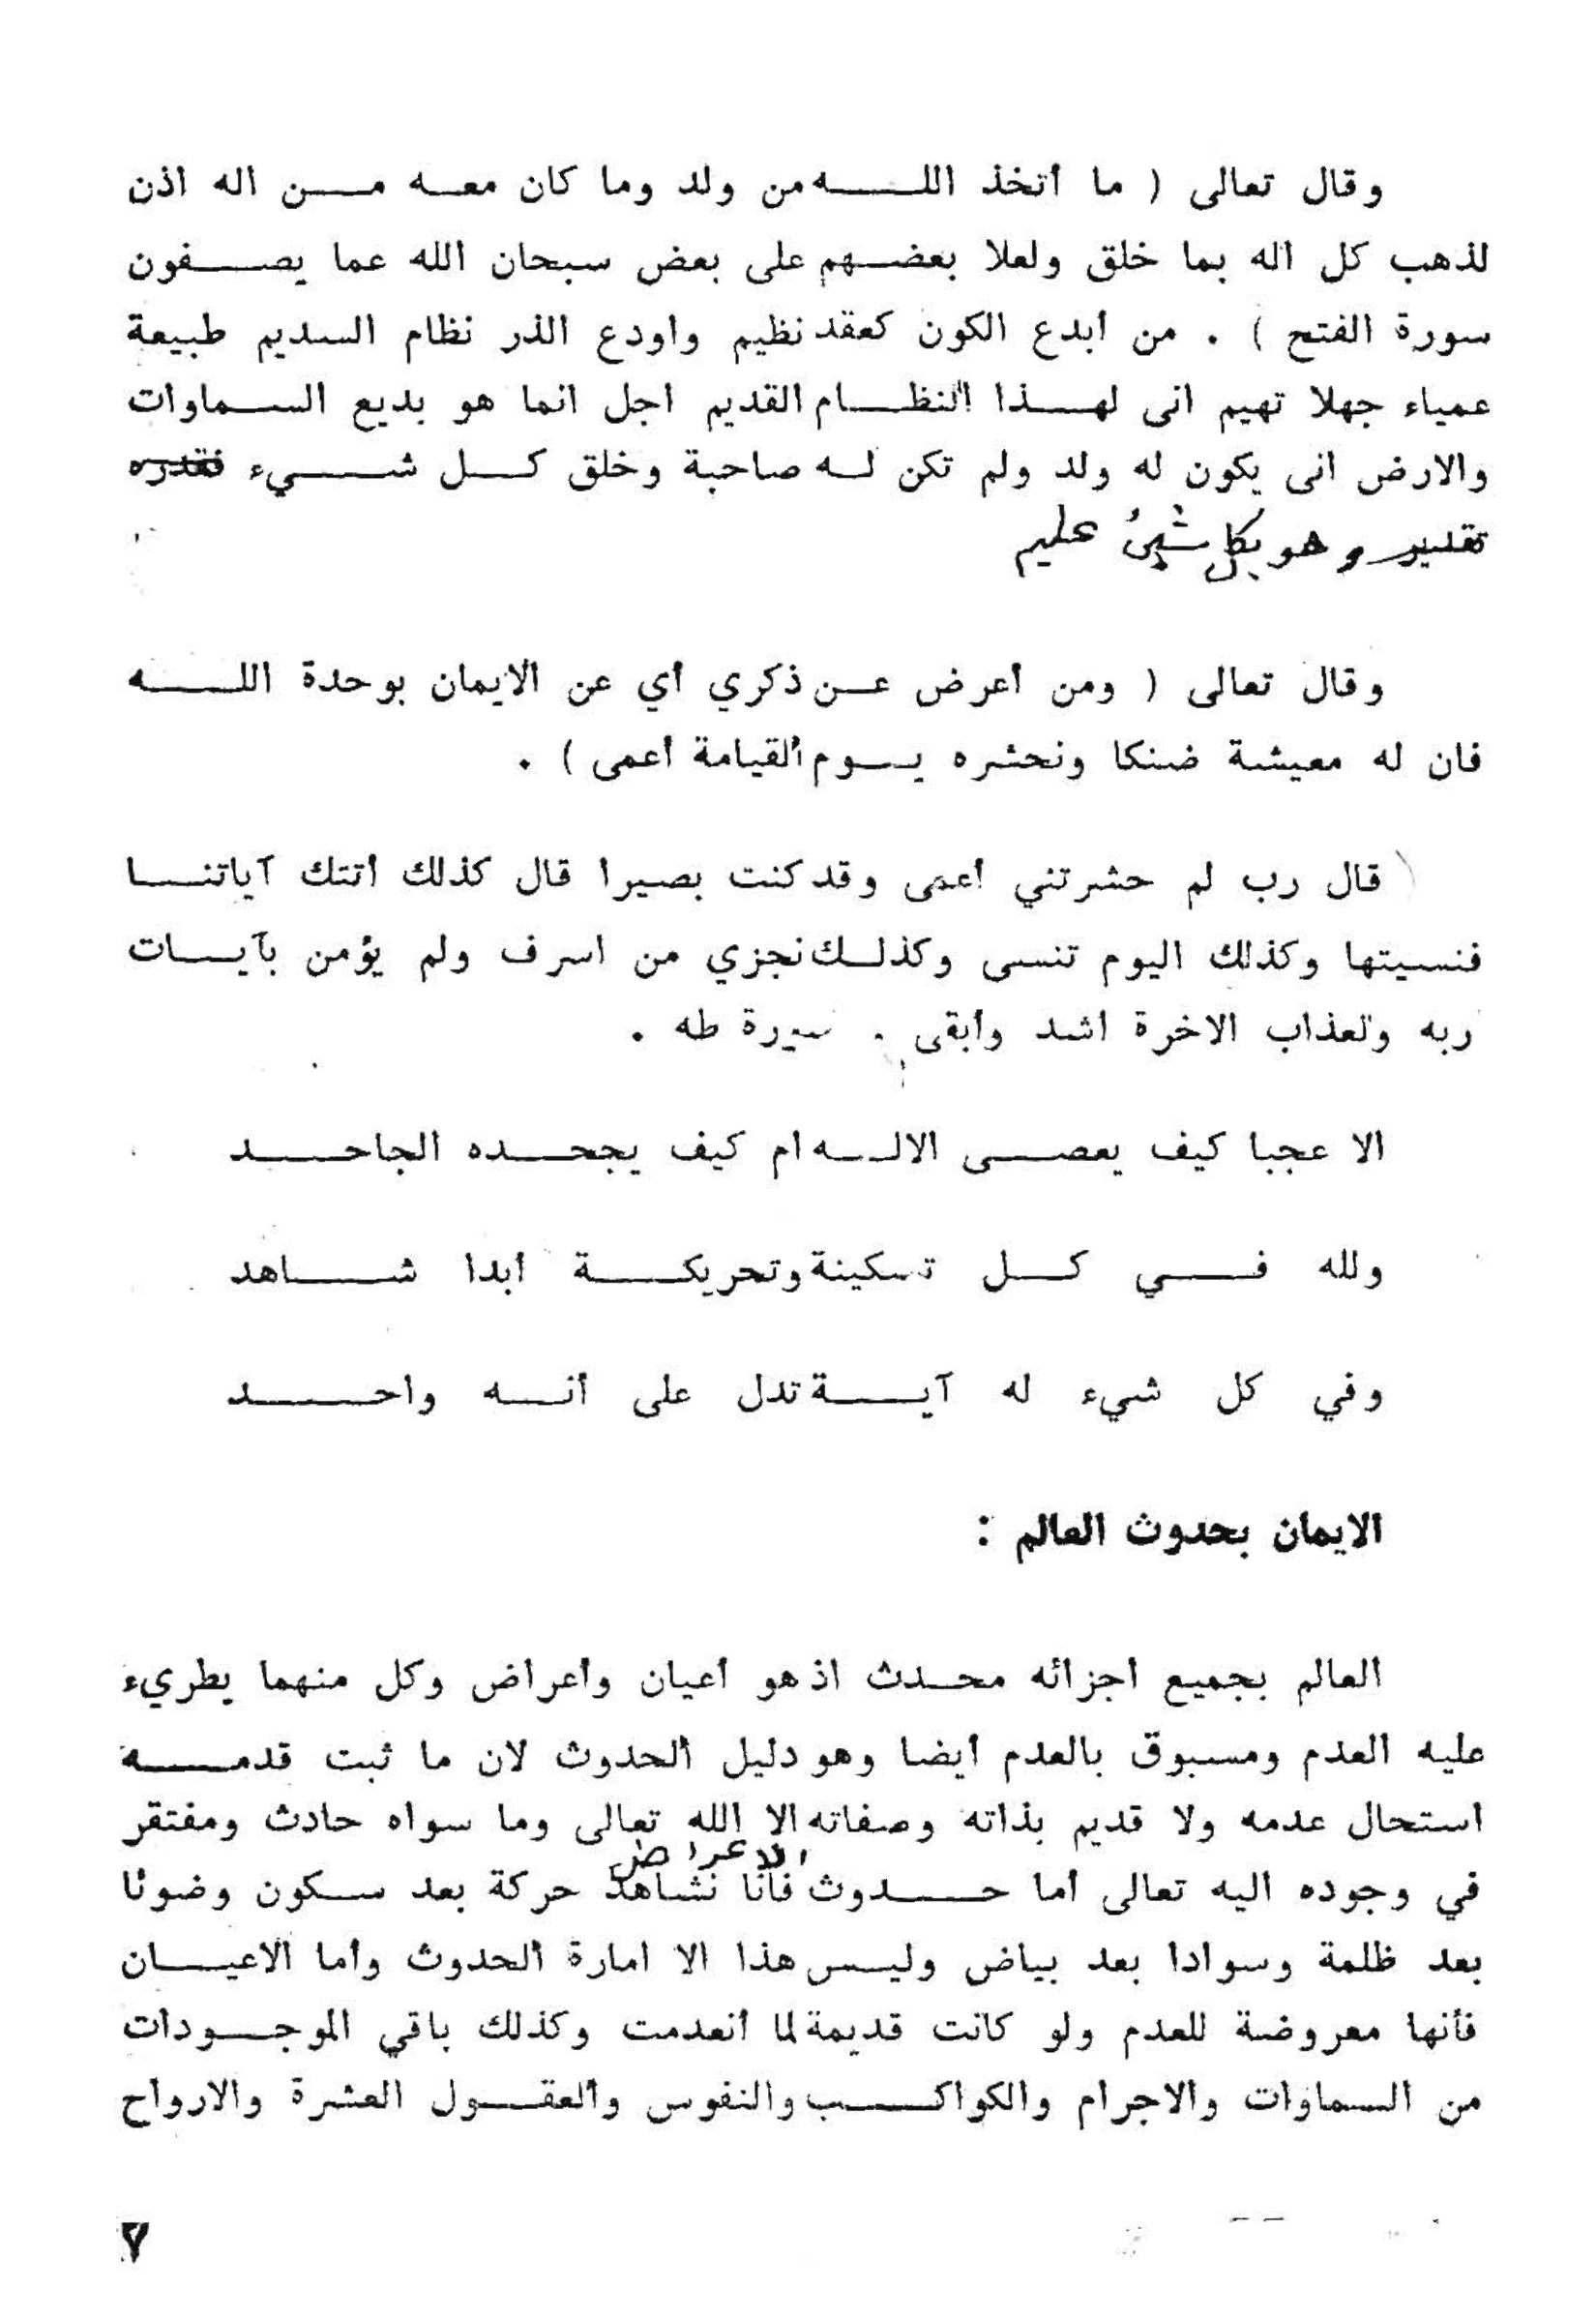 وقال تعالى ( ما أتخذ الله من ولد وما كان معه من اله اذن
لذهب كل اله بما خلق ولعلا بعضهم على بعض سبحان الله عما يصفون
سورة الفتح ) . من أبدع الكون كعقد نظيم واودع الذر نظام السديم طبيعة
عمياء جهلا تهيم انى لهذا النظام القديم اجل انما هو بديع السماوات
والارض انى يكون له ولد ولم تكن له صاحبة وخلق كل شيء فقدره
تقدير وهو بكل شيئ عليم
وقال تعالى ( ومن أعرض عن ذكري أي عن الايمان بوحدة الله
فان له معيشة ضنكا ونحشره يوم القيامة أعمى ) .
( قال رب لم حشرتني أعمى وقد كنت بصيرا قال كذلك أتتك آياتنا
فنسيتها وكذلك اليوم تنسى وكذلك نجزي من اسرف ولم يؤمن بآيات
ربه ولعذاب الاخرة اشد وأبقى . سورة طه .
الا عجبا كيف يعصى الاله ام كيف يجحده الجاحد
ولله في كل تسكينة وتحريكة ابدا شاهد
وفي كل شيء له آية تدل على أنه واحد
الايمان بحدوث العالم :
العالم بجميع اجزائه محدث اذ هو أعيان وأعراض وكل منهما يطريء
عليه العدم ومسبوق بالعدم أيضا وهو دليل ألحدوث لان ما ثبت قدمه
استحال عدمه ولا قديم بذاته وصفاته الا الله تعالى وما سواه حادث ومفتقر
الاعراض
في وجوده اليه تعالى أما حدوث فأنا نشاهد حركة بعد سكون وضوئا
بعد ظلمة وسوادا بعد بياض وليس هذا الا امارة ألحدوث وأما الاعيان
فأنها معروضة للعدم ولو كانت قديمة لما أنعدمت وكذلك باقي الموجودات
من السماوات والاجرام والكواكب والنفوس والعقول العشرة والارواح
٧